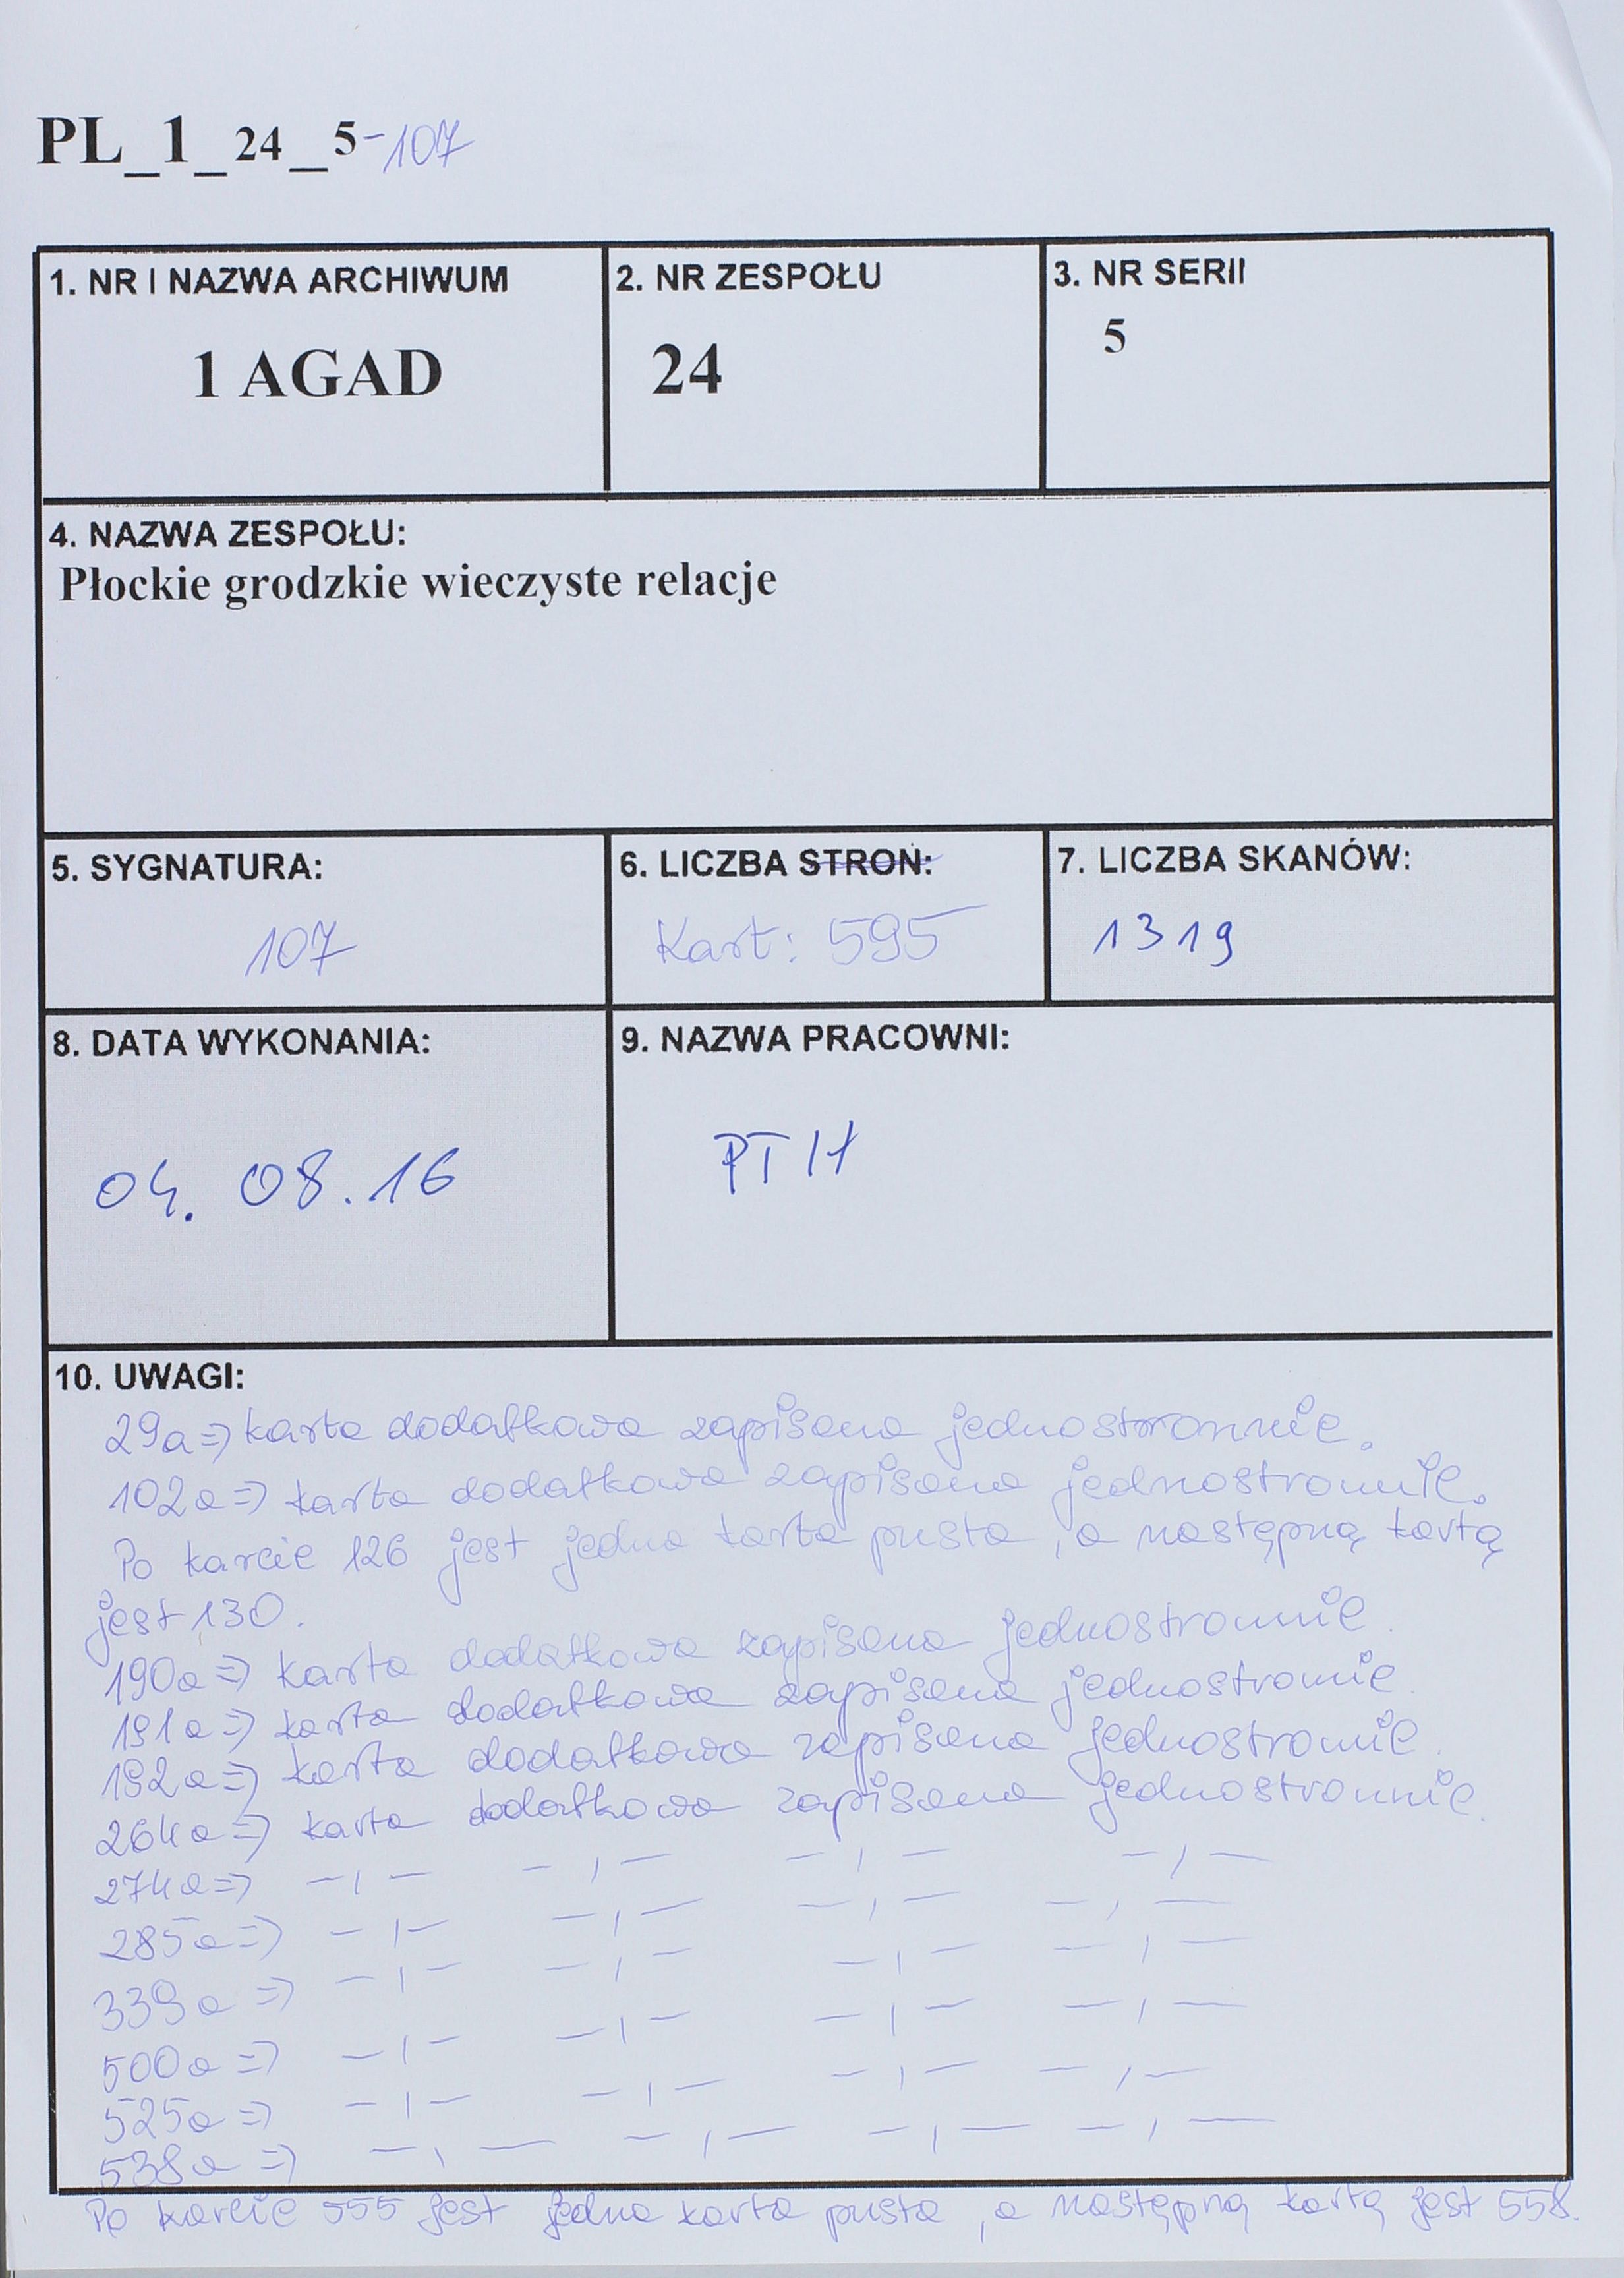 PL_1_24_5-107
1. NR I NAZWA ARCHIWUM
1 AGAD
2. NR ZESPOŁU
24
3. NR SERII
5
4. NAZWA ZESPOŁU:
Płockie grodzkie wieczyste relacje
5. SYGNATURA:
107
6. LICZBA STRON:
Kart: 595
7. LICZBA SKANÓW:
1319
8. DATA WYKONANIA:
04. 08. 16
9. NAZWA PRACOWNI:
PTH
10. UWAGI:
29a => karta dodatkowa zapisana jednostronnie.
102a => karta dodatkowa zapisana jednostronnie.
Po karcie 126 jest jedna karta pusta, a następną kartą
jest 130.
190a => karta dodatkowa zapisana jednostronnie.
191a => karta dodatkowa zapisana jednostronnie.
192a => karta dodatkowa zapisana jednostronnie.
264a => karta dodatkowa zapisana jednostronnie.
274a => —,— —,— —,— —,—
285a => —,— —,— —,— —,—
339a => —,— —,— —,— —,—
500a => —,— —,— —,— —,—
525a => —,— —,— —,— —,—
538a => —,— —,— —,— —,—
Po karcie 555 jest jedna karta pusta, a następną kartą jest 558.